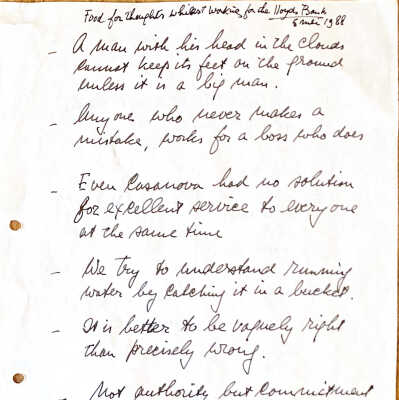 Food for thoughts whilest working for the Lloyds Bank
1988
- A man with his head in the clouds
cannot keep its feet on the ground
unless it is a big man.
- Anyone who never makes a
mistake, works for a boss who does
- Even Casanova had no solution
for excellent service to everyone
at the same time
- We try to understand running
water by catching it in a bucket.
- It is better to be vaguely right
than precisely wrong.
- Not authority but commitment